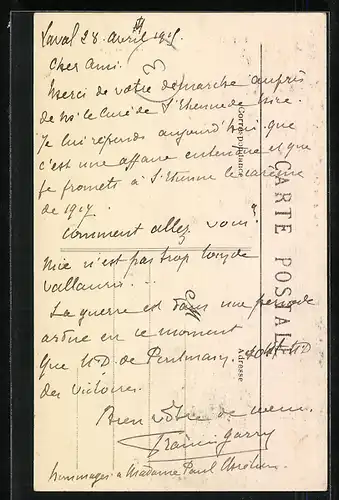 Laval 28 Avril
Cher Ami.
Merci de votre démarche auprès
de Mr le Curé de St Etienne de Nice.
Je lui réponds aujourd'hui que
c'est une affaire entendue et que
je promets à St Etienne le carême
de 1917.
Comment allez vous?
Nice n'est pas trop loin de
Vallauris...
La guerre est dans une période
ardue en ce moment
Que N.D. de soit N.D
des Victoires.
Bien vôtre de cœur.
hommages à Madame Paul
CARTE POSTALE
Correspondance
Adresse